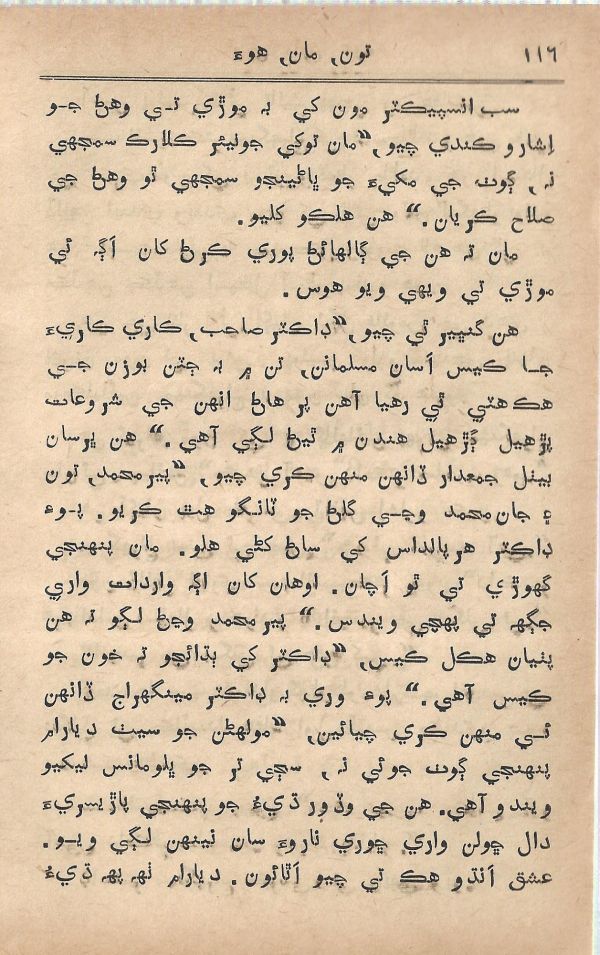 ١١٦ تون, مان, هوءَ
سب انسپيڪٽر مون کي بہ موڙي تـي وهڻ جـو
اِشارو ڪندي چيو, “مان توکي جوليئر ڪلارڪ سمجهي
نہ, ڳوٺ جي مکيءَ جو ڀائيٽيو سمجهي ٿو وهڻ جي
صلاح ڪريان.“ هن هلڪو کليو.
مان تہ هن جي ڳالهائڻ پوري ڪرڻ کان اَڳہ ئي
موڙي تي ويهي ويو هوس.
هن گنڀير ٿي چيو, “ڊاڪٽر صاحب, ڪاري ڪاريءَ
جـا ڪيس اَسان مسلمانن, تن ۾ بہ جٽن ٻوزن جـي
هڪهٽي ٿي رهيا آهن پر هاڻ انهن جي شروعات
پڙهيل ڳڙهيل هندن ۾ ٿيڻ لڳي آهي.“ هن ڀرسان
بيٺل جمعدار ڏانهن منهن ڪري چيو, “پير محمد, تون
۽ جان محمد وڃـي گلڻ جو ٽانـگو هٿ ڪريو. پـوءِ
ڊاڪٽر هرپالداس کي ساڻ کڻي هلو. مان پنهنجي
گهوڙي تي ٿو اَچان. اوهان کان اڳہ واردات واري
جڳهہ تي پهچي ويندس.“ پير محمد وڃڻ لڳو تہ هن
پٺيان هڪل ڪيس, “ڊاڪٽر کي ٻڌائجو تہ خون جو
ڪيس آهي.“ پوءِ وري بہ ڊاڪٽر مينگهراج ڏانهن
ئـي منهن ڪري چيائين, “مولهڻن جو سيٺ ديارام
پنهنجي ڳوٺ جو ئي نہ, سڄي تر جو ڀلو مانس ليکيو
ويندو آهي. هن جي وڏ ور ڌيءُ جو پنهنجي پاڙيسريءَ
دال ڇولن واري ڇوري ناروءَ سان نينهن لڳي ويـو.
عشق اَنڌو هڪ ٿي چيو اَٿائون. ديارام ٺهہ پهہ ڌيءُ